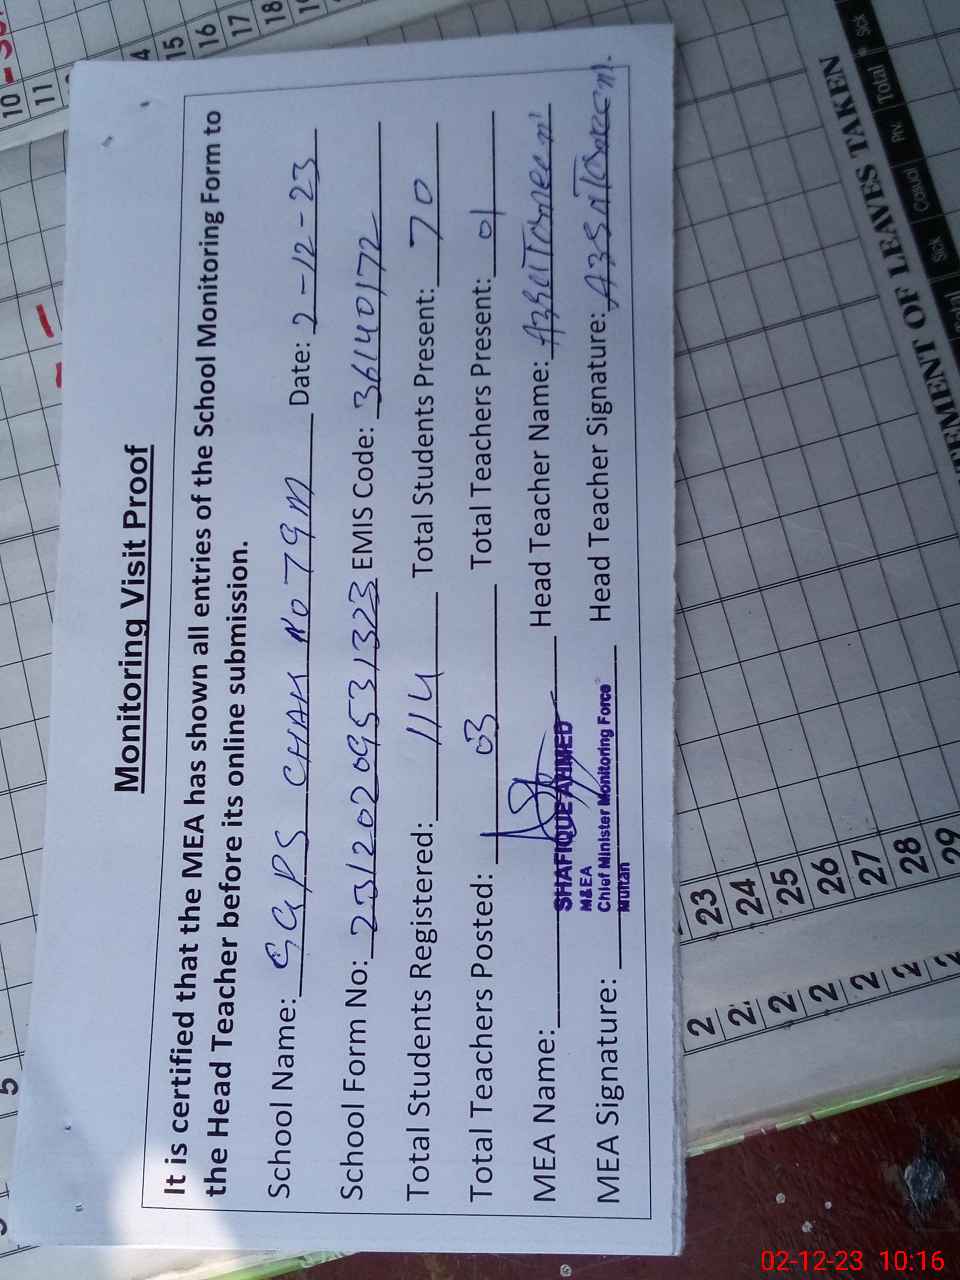 Monitoring Visit Proof
It is certified that the MEA has shown all entries of the School Monitoring Form to
the Head Teacher before its online submission.
School Name: GGPS CHAK NO 79 M Date: 2-12-23
School Form No: 231202 09531323 EMIS Code: 36140172
Total Students Registered: 114 Total Students Present: 70
Total Teachers Posted: 03 Total Teachers Present: 01
MEA Name: Head Teacher Name:
SHAFIQUE AHMED
M&EA
Chief Minister Monitoring Force
Multan
MEA Signature: Head Teacher Signature:
STATEMENT OF LEAVES TAKEN
Sick Casual Priv. Total Sick
10
11
4
15
16
17
18
5
23
24
25
26
27
28
29
02-12-23 10:16